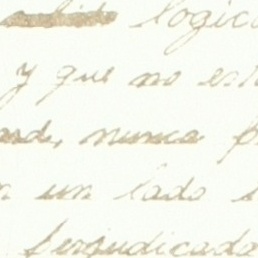 logic
y que no est
nunca p
un lado
perjudicado